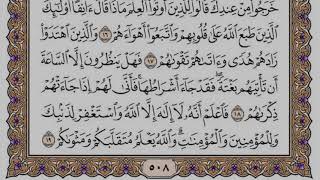 خَرَجُوا۟ مِنْ عِندِكَ قَالُوا۟ لِلَّذِينَ أُوتُوا۟ ٱلْعِلْمَ مَاذَا قَالَ ءَانِفًا أُو۟لَٰٓئِكَ
ٱلَّذِينَ طَبَعَ ٱللَّهُ عَلَىٰ قُلُوبِهِمْ وَٱتَّبَعُوٓا۟ أَهْوَآءَهُمْ ١٦ وَٱلَّذِينَ ٱهْتَدَوْا۟
زَادَهُمْ هُدًى وَءَاتَىٰهُمْ تَقْوَىٰهُمْ ١٧ فَهَلْ يَنظُرُونَ إِلَّا ٱلسَّاعَةَ
أَن تَأْتِيَهُم بَغْتَةً فَقَدْ جَآءَ أَشْرَاطُهَا فَأَنَّىٰ لَهُمْ إِذَا جَآءَتْهُمْ
ذِكْرَىٰهُمْ ١٨ فَٱعْلَمْ أَنَّهُۥ لَآ إِلَٰهَ إِلَّا ٱللَّهُ وَٱسْتَغْفِرْ لِذَنۢبِكَ
وَلِلْمُؤْمِنِينَ وَٱلْمُؤْمِنَٰتِ وَٱللَّهُ يَعْلَمُ مُتَقَلَّبَكُمْ وَمَثْوَىٰكُمْ ١٩
٥٠٨